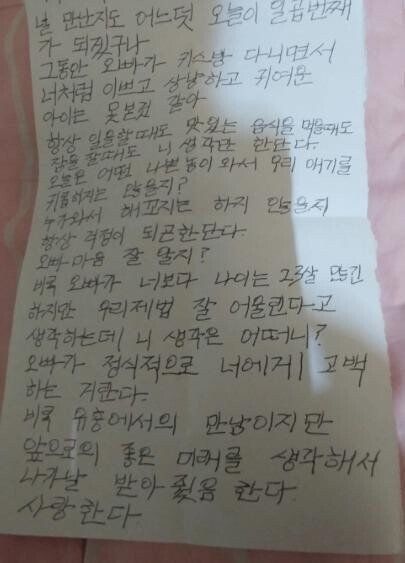 널 만난지도 어느덧 오늘이 일곱번째
가 되겠구나
그동안 오빠가 키스방 다니면서
너처럼 이쁘고 상냥하고 귀여운
아이는 못본것 같아
항상 일을할때도 맛있는 음식을 먹을때도
잠을 잘때도 니 생각만 한단다.
오늘은 어떤 나쁜놈이 와서 우리 애기를
귀찮이지는 않을지?
누가와서 해꼬지는 하지 않을지
항상 걱정이 되곤한단다.
오빠 마음 잘 알지?
비록 오빠가 너보다 나이는 23살 많긴
하지만 우리제법 잘 어울린다고
생각하는데 니 생각은 어떠니?
오빠가 정식적으로 너에게 고백
하는 거란다.
비록 유흥에서의 만남이지만
앞으로의 좋은 미래를 생각해서
나가날 받아줬음 한다
사랑한다